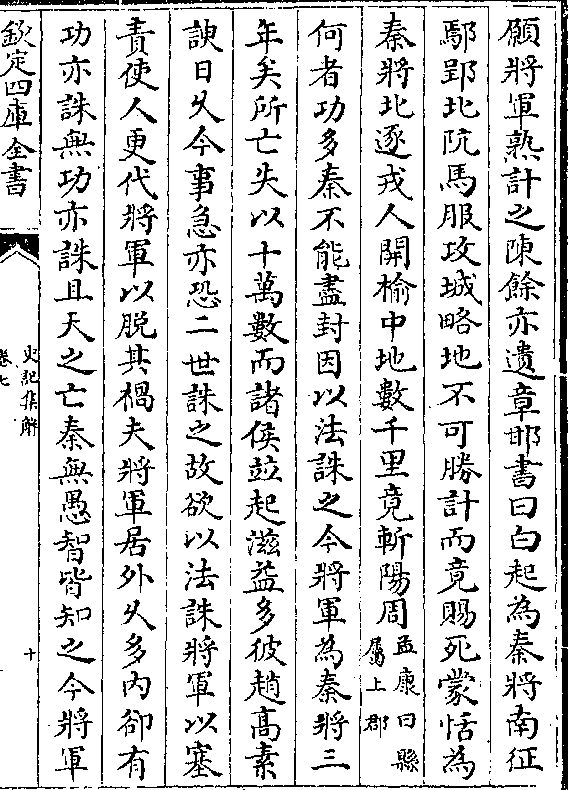 願將軍熟計之陳餘亦遺章邯書曰白起為秦將南征
鄢郢北阬馬服攻城略地不可勝計而竟賜死蒙恬為
秦將北逐戎人開榆中地數千里竟斬陽周孟康曰縣屬上郡
何者功多秦不能盡封因以法誅之今將軍為秦將三
年矣所亡失以十萬數而諸侯竝起滋益多彼趙高素
諛日久今事急亦恐二世誅之故欲以法誅將軍以塞
責使人更代將軍以脱其禍夫將軍居外久多內卻有
功亦誅無功亦誅且天之亡秦無愚智皆知之今將軍
欽定四庫全書
史記集解
卷七
十